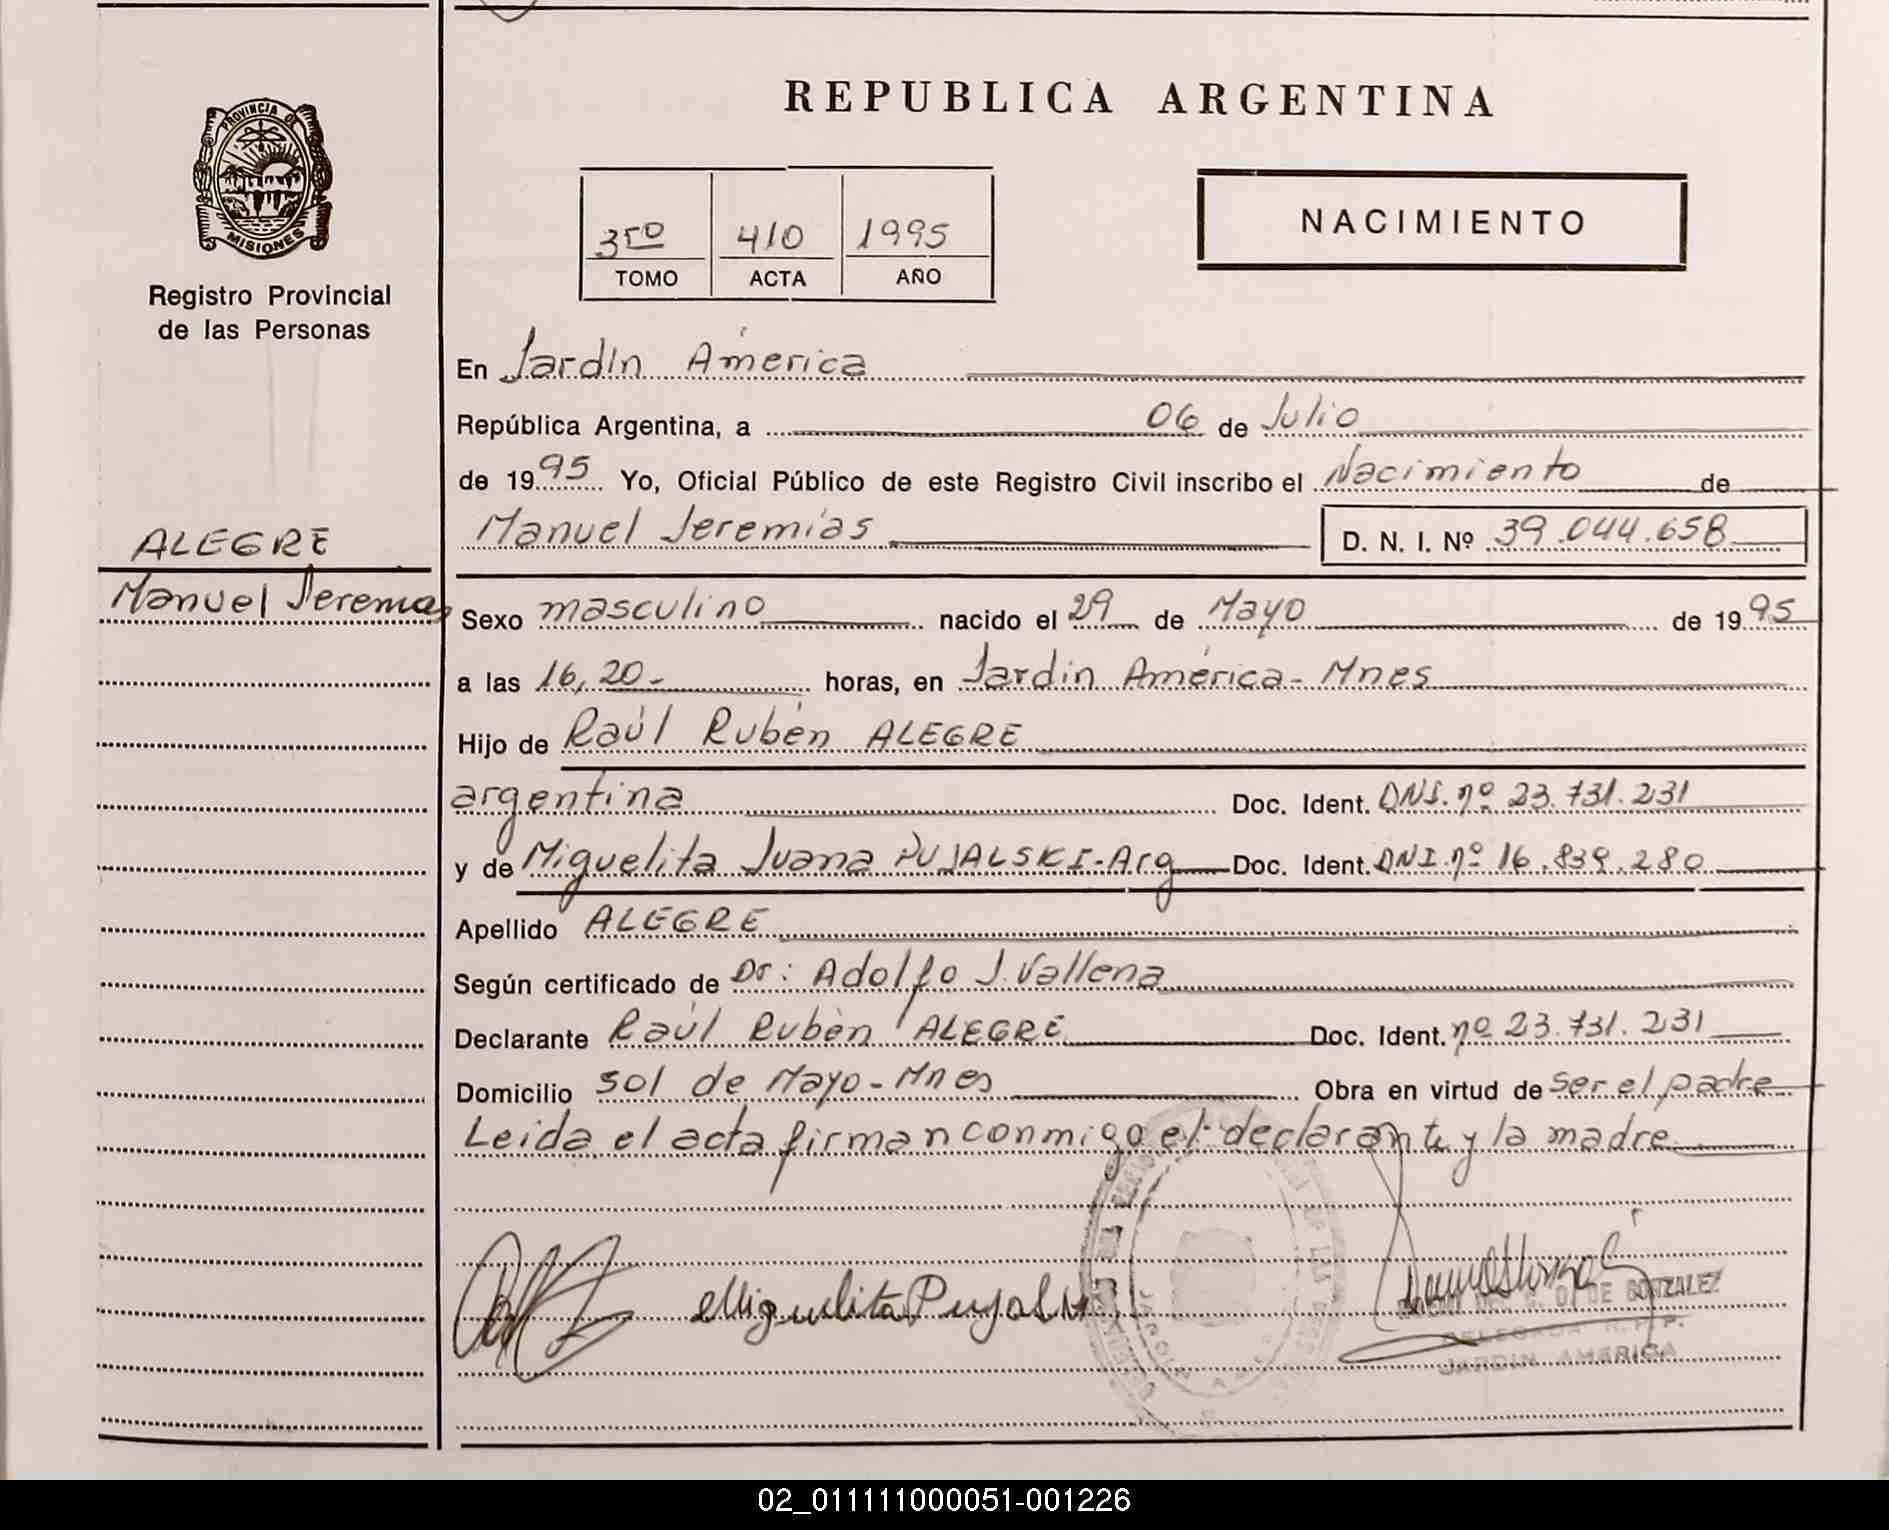 REPUBLICA ARGENTINA
PROVINCIA DE
MISIONES
Registro Provincial
de las Personas
3ro 410 1995
TOMO ACTA AÑO
NACIMIENTO
En Jardín América
República Argentina, a 06 de Julio
de 1995 Yo, Oficial Público de este Registro Civil inscribo el Nacimiento de
Manuel Jeremías D. N. I. Nº 39.044.658
ALEGRE
Manuel Jeremías
Sexo masculino nacido el 29 de Mayo de 1995
a las 16,20- horas, en Jardin América- Mnes
Hijo de Raúl Rubén ALEGRE
argentina Doc. Ident. DNI. nº 23.731.231
y de Miguelita Juana PUJALSKI-Arg Doc. Ident. DNI. nº 16.839.280
Apellido ALEGRE
Según certificado de Dr: Adolfo J. Vallena
Declarante Raúl Rubén ALEGRE Doc. Ident. nº 23.731.231
Domicilio sol de Mayo-Mnes Obra en virtud de ser el padre
Leida el acta firman conmigo el declarante y la madre
Miguelita Pujalski
DE GONZALEZ
DELEGADA R.P.P.
JARDIN AMERICA
02_011111000051-001226